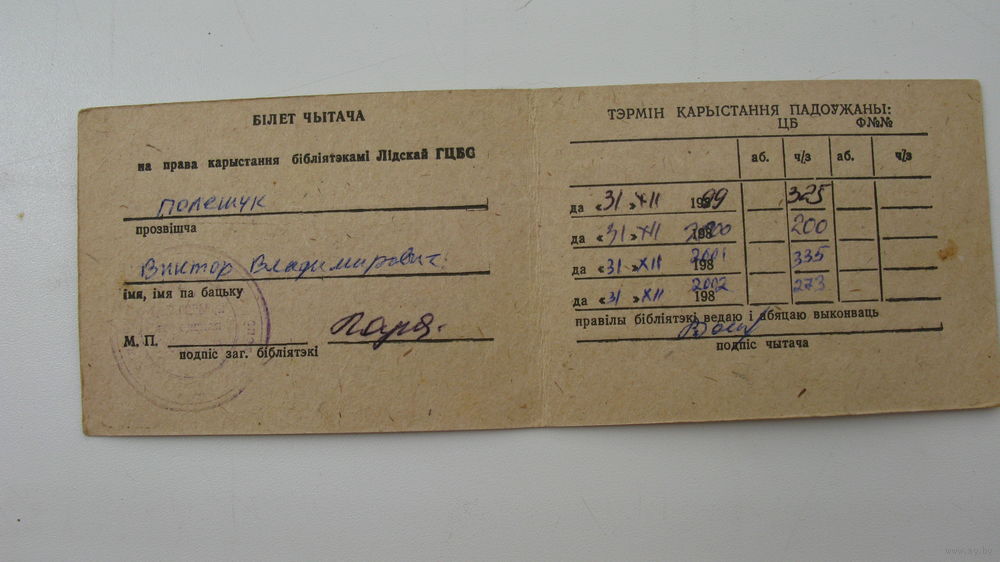 БІЛЕТ ЧЫТАЧА
на права карыстання бібліятэкамі Лідскай ГЦБС
Полещук
прозвішча
Виктор Владимирович
імя, імя па бацьку
М. П.
подпіс заг. бібліятэкі
ТЭРМІН ҚАРЫСТАННЯ ПАДОЎЖАНЫ:
ЦБ Ф№№
аб. ч/з аб. ч/з
да «31»XII 1999 325
да «31»XII 198 2000 200
да «31»XII 198 2001 335
да «31»XII 198 2002 273
правілы бібліятэкі ведаю і абяцаю выконваць
подпіс чытача
www.ay.by